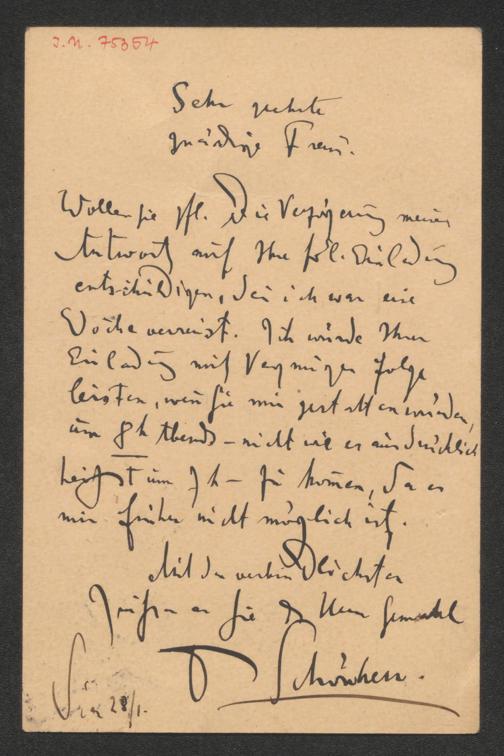 J.N. 75364
Sehr geehrte
gnädige Frau.
Wollen Sie gfl. die Verzögerung meiner
Antwort auf Ihre frdl. Einladung
entschuldigen, den ich war eine
Woche verreist. Ich würde Ihrer
Einladung mit Vergnügen folge
leisten, wen Sie mir gestatten würden,
um 8h Abends – nicht wie es ausdrücklich
heisst um 7h – zu komen, da es
mir früher nicht möglich ist.
Mit den verbindlichsten
Grüssen an Sie & Ihren Gemahl
Schönherr.
28/1.